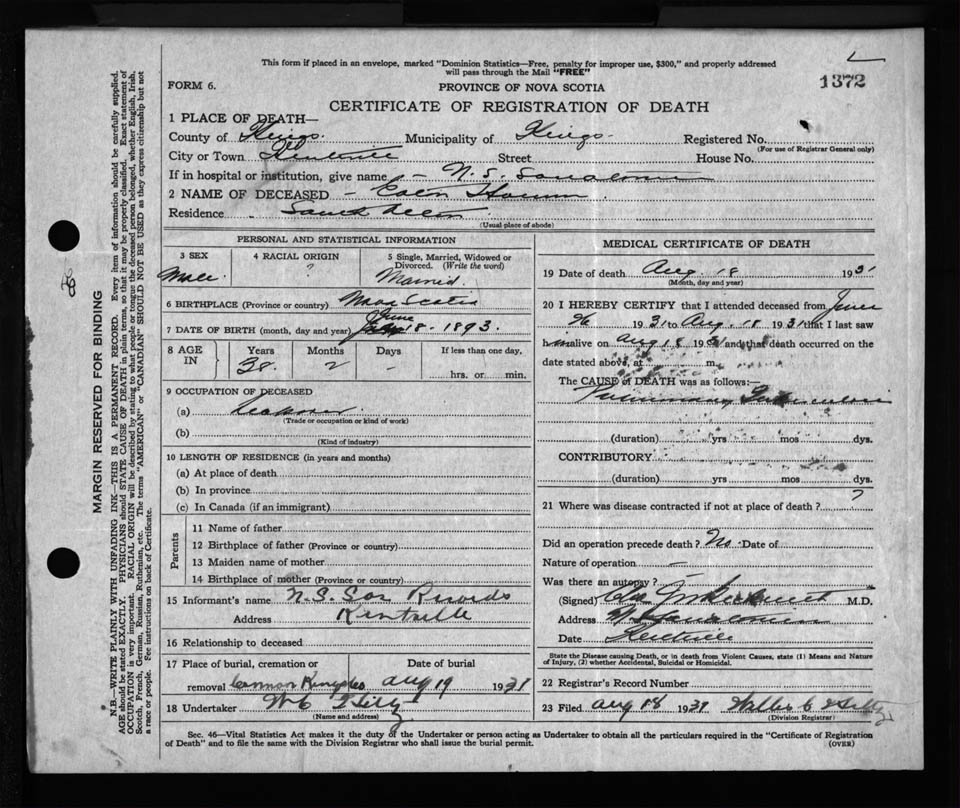 This form if placed in an envelope, marked "Dominion Statistics—Free, penalty for improper use, $300," and properly addressed
will pass through the Mail "FREE"
1372
FORM 6.
PROVINCE OF NOVA SCOTIA
CERTIFICATE OF REGISTRATION OF DEATH
1 PLACE OF DEATH—
County of Kings. Municipality of Kings. Registered No.
(For use of Registrar General only)
City or Town Kentville Street House No.
If in hospital or institution, give name N. S. Sanatorium
2 NAME OF DECEASED –
Residence
(Usual place of abode)
PERSONAL AND STATISTICAL INFORMATION
3 SEX 4 RACIAL ORIGIN 5 Single, Married, Widowed or Divorced. (Write the word)
Male ? Married.
6 BIRTHPLACE (Province or country) Nova Scotia
7 DATE OF BIRTH (month, day and year) June 18 - 1893.
8 AGE IN Years Months Days If less than one day,
38 2 - hrs. or min.
9 OCCUPATION OF DECEASED
(a)
(Trade or occupation or kind of work)
(b)
(Kind of industry)
10 LENGTH OF RESIDENCE (in years and months)
(a) At place of death
(b) In province
(c) In Canada (if an immigrant)
Parents
11 Name of father
12 Birthplace of father (Province or country)
13 Maiden name of mother
14 Birthplace of mother (Province or country)
15 Informant's name N. S. San Records
Address Kentville
16 Relationship to deceased
17 Place of burial, cremation or Date of burial
removal Aug 19 1931
18 Undertaker
(Name and address)
MEDICAL CERTIFICATE OF DEATH
19 Date of death Aug. 18 1931
(Month, day and year)
20 I HEREBY CERTIFY that I attended deceased from June
26 1931 to Aug. 18 1931 that I last saw
him alive on Aug 18 1931 and that death occurred on the
date stated above, at m.
The CAUSE of DEATH was as follows:—
Pulmonary Tuberculosis
(duration) yrs mos dys.
CONTRIBUTORY
(duration) yrs mos dys.
21 Where was disease contracted if not at place of death? ?
Did an operation precede death? No Date of
Nature of operation –
Was there an autopsy?
(Signed) M.D.
Address N.S. Sanatorium
Date Kentville
State the Disease causing Death, or in death from Violent Causes, state (1) Means and Nature
of Injury, (2) whether Accidental, Suicidal or Homicidal.
22 Registrar's Record Number
23 Filed Aug 18 1931
(Division Registrar)
Sec. 46—Vital Statistics Act makes it the duty of the Undertaker or person acting as Undertaker to obtain all the particulars required in the "Certificate of Registration
of Death" and to file the same with the Division Registrar who shall issue the burial permit.
(OVER)
MARGIN RESERVED FOR BINDING
N.B.—WRITE PLAINLY WITH UNFADING INK—THIS IS A PERMANENT RECORD. Every item of information should be carefully supplied.
AGE should be stated EXACTLY. PHYSICIANS should STATE CAUSE OF DEATH in plain terms, so that it may be properly classified. Exact statement of
OCCUPATION is very important. RACIAL ORIGIN will be described by stating to what people or tongue the deceased person belonged, whether English, Irish,
Scotch, French, German, Russian, Ruthenian, etc. The terms "AMERICAN" or "CANADIAN" SHOULD NOT BE USED as they express citizenship but not
a race or people. Fee instructions on back of Certificate.